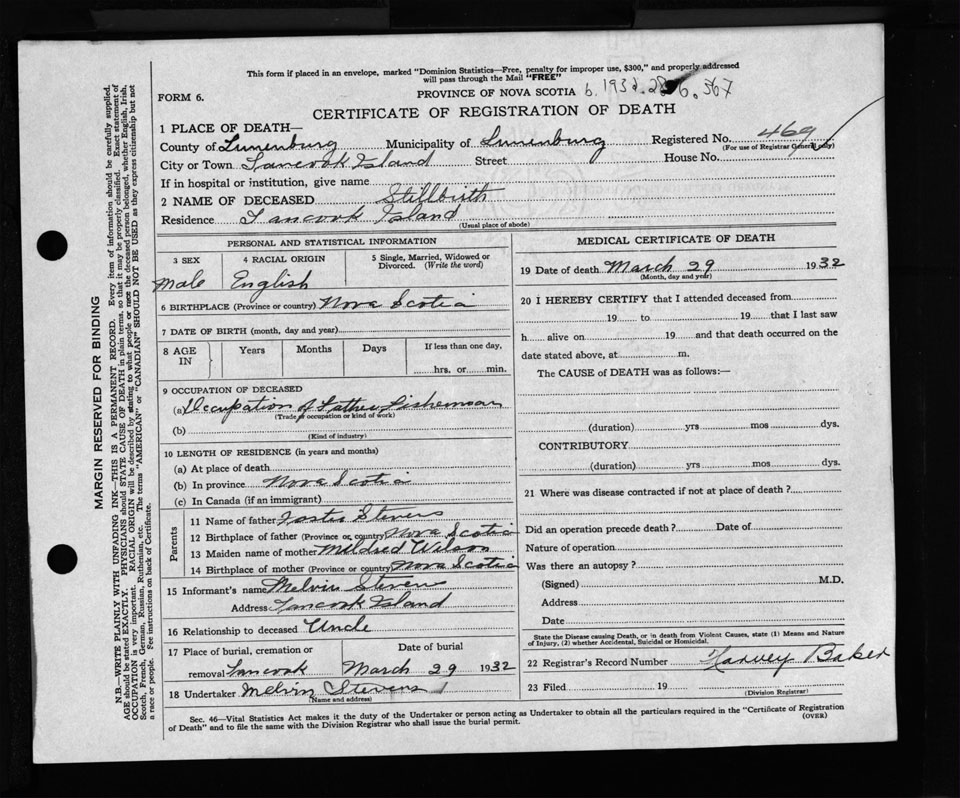 This form if placed in an envelope, marked "Dominion Statistics—Free, penalty for improper use, $300," and properly addressed
will pass through the Mail "FREE"
FORM 6.
PROVINCE OF NOVA SCOTIA b. 1932. 567
CERTIFICATE OF REGISTRATION OF DEATH
1 PLACE OF DEATH—
County of Lunenburg Municipality of Lunenburg Registered No. 469
(For use of Registrar General only)
City or Town Tancook Island Street House No.
If in hospital or institution, give name
2 NAME OF DECEASED Stillbirth
Residence Tancook Island
(Usual place of abode)
PERSONAL AND STATISTICAL INFORMATION
3 SEX 4 RACIAL ORIGIN 5 Single, Married, Widowed or
Divorced. (Write the word)
Male English
6 BIRTHPLACE (Province or country) Nova Scotia
7 DATE OF BIRTH (month, day and year)
8 AGE IN Years Months Days If less than one day,
hrs. or min.
9 OCCUPATION OF DECEASED
(a) Occupation of Father Fishermoan
(Trade or occupation or kind of work)
(b)
(Kind of industry)
10 LENGTH OF RESIDENCE (in years and months)
(a) At place of death
(b) In province Nova Scotia
(c) In Canada (if an immigrant)
Parents
11 Name of father Foster Stevens
12 Birthplace of father (Province or country) Nova Scotia
13 Maiden name of mother Mildred Wilson
14 Birthplace of mother (Province or country) Nova Scotia
15 Informant's name Melvin Stevens
Address Tancook Island
16 Relationship to deceased Uncle
17 Place of burial, cremation or Date of burial
removal Tancook March 29 1932
18 Undertaker Melvin Stevens
(Name and address)
MEDICAL CERTIFICATE OF DEATH
19 Date of death March 29 1932
(Month, day and year)
20 I HEREBY CERTIFY that I attended deceased from
19 to 19 that I last saw
h alive on 19 and that death occurred on the
date stated above, at m.
The CAUSE of DEATH was as follows:—
(duration) yrs mos dys.
CONTRIBUTORY
(duration) yrs mos dys.
21 Where was disease contracted if not at place of death ?
Did an operation precede death ? Date of
Nature of operation
Was there an autopsy ?
(Signed) M.D.
Address
Date
State the Disease causing Death, or in death from Violent Causes, state (1) Means and Nature
of Injury, (2) whether Accidental, Suicidal or Homicidal.
22 Registrar's Record Number Harvey Baker
23 Filed 19
(Division Registrar)
Sec. 46—Vital Statistics Act makes it the duty of the Undertaker or person acting as Undertaker to obtain all the particulars required in the "Certificate of Registration
of Death" and to file the same with the Division Registrar who shall issue the burial permit.
(OVER)
MARGIN RESERVED FOR BINDING
N.B.—WRITE PLAINLY WITH UNFADING INK—THIS IS A PERMANENT RECORD. Every item of information should be carefully supplied.
AGE should be stated EXACTLY. PHYSICIANS should STATE CAUSE OF DEATH in plain terms, so that it may be properly classified. Exact statement of
OCCUPATION is very important. RACIAL ORIGIN will be described by stating to what people or race the deceased person belonged, whether English, Irish,
Scotch, French, German, Russian, Ruthenian, etc. The terms "AMERICAN" or "CANADIAN" SHOULD NOT BE USED as they express citizenship but not
a race or people. Fee instructions on back of Certificate.